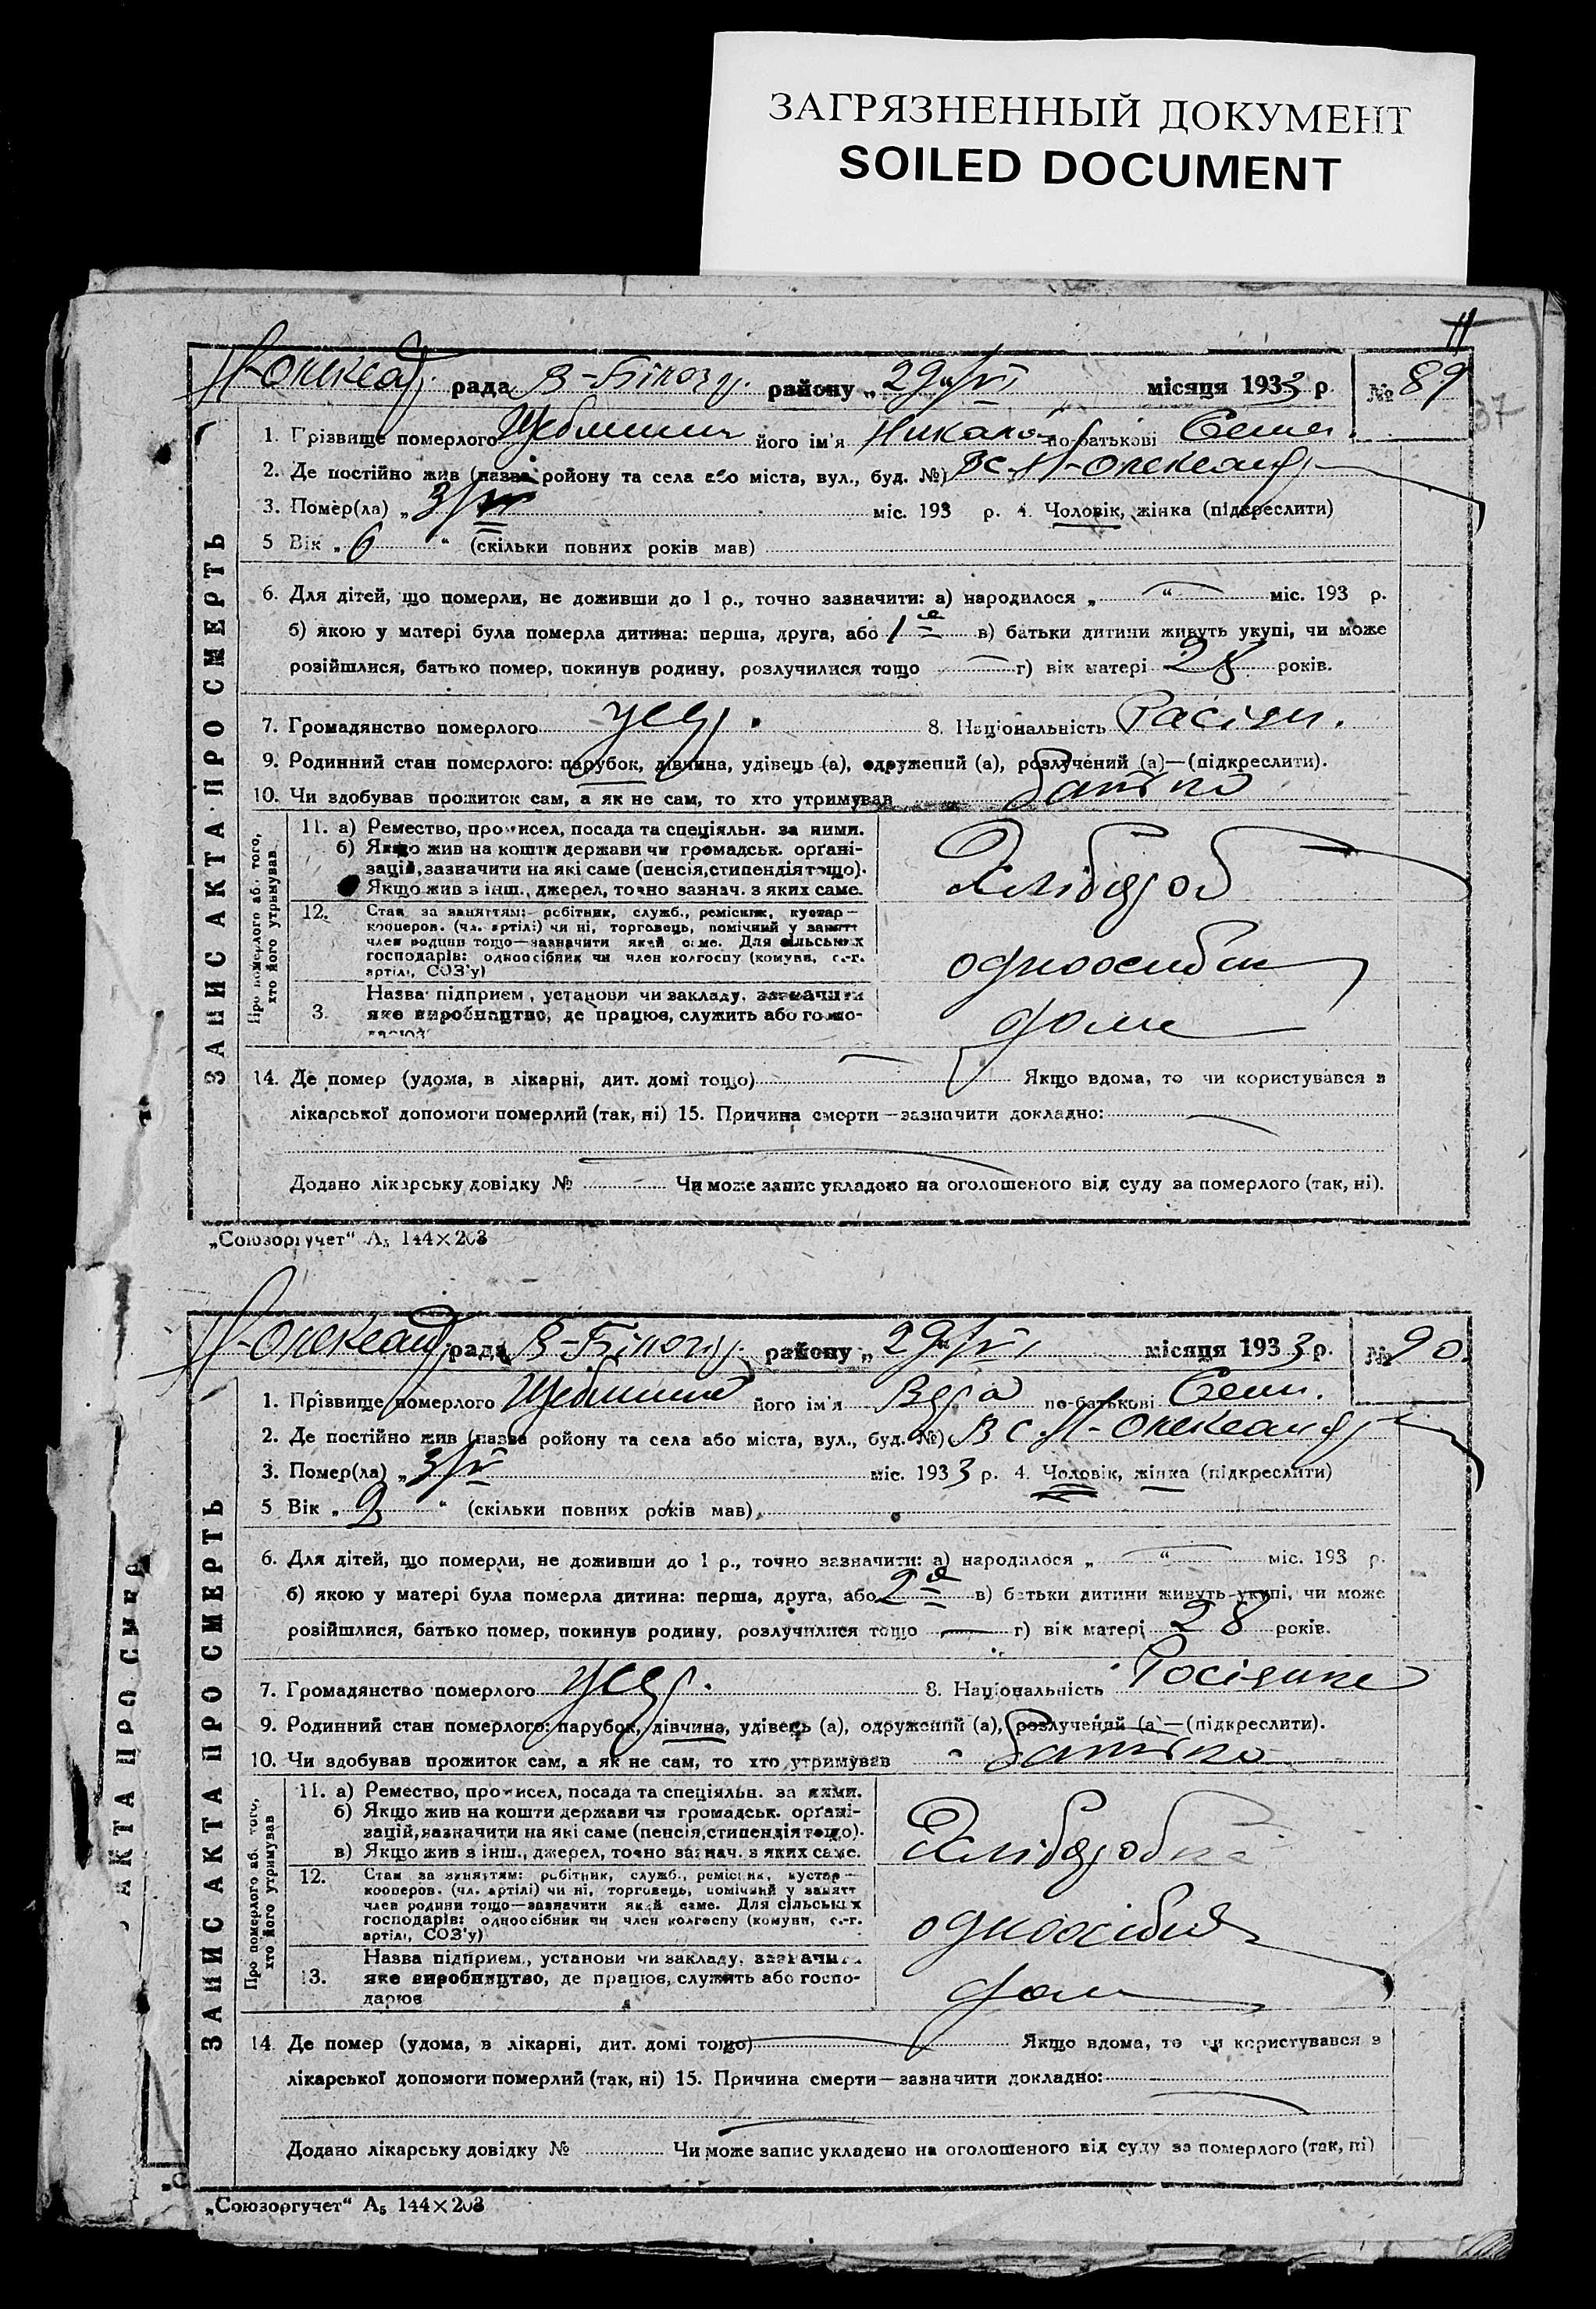 ЗАГРЯЗНЕННЫЙ ДОКУМЕНТ
SOILED DOCUMENT
11
37
Н-Олександ. рада В-Білозер. району „29“/VI місяця 1933 р. № 89
1. Прізвище померлого його ім'я Никалай по-батькові Семен.
2. Де постійно жив (назва ройону та села або міста, вул., буд. №) Вс. Н-Олександ
3. Помер(ла) „3/ міс. 193 р. 4. Чоловік, жінка (підкреслити)
5 Вік „6“ (скільки повних років мав)
6. Для дітей, що померли, не доживши до 1 р., точно зазначити: а) народилося „ “ міс. 193 р.
б) якою у матері була померла дитина: перша, друга, або 1а в) батьки дитини живуть укупі, чи може
розійшлися, батько помер, покинув родину, розлучилися тощо — г) вік матері 28 років.
7. Громадянство померлого 8. Національність Расіян.
9. Родинний стан померлого: парубок, дівчина, удівець (а), одружений (а), розлучений (а)—(підкреслити).
10. Чи здобував прожиток сам, а як не сам, то хто утримував батько
ЗАПИС АКТА ПРО СМЕРТЬ
Про померлого аб. того, хто його утримував
11. а) Ремество, промисел, посада та спеціяльн. за ними.
б) Якщо жив на кошти держави чи громадськ. орґані-
зацій, зазначити на які саме (пенсія, стипендія тощо).
Якщо жив з інш., джерел, точно зазнач. з яких саме.
Хлібороб
12. Стан за заняттям: робітник, служб., ремісник, кустар—
кооперов. (чл. артілі) чи ні, торговець, помічний у занятт
член родини тощо—зазначити який саме. Для сільських
господарів: одноосібник чи член колгоспу (комуни, с.-г.
артілі, СОЗ'у)
одноосибн
3. Назва підприєм., установи чи закладу, зазначити
яке виробництво, де працює, служить або госпо-
дарює
дома
14. Де помер (удома, в лікарні, дит. домі тощо) Якщо вдома, то чи користувався з
лікарської допомоги померлий (так, ні) 15. Причина смерти—зазначити докладно:
Додано лікарську довідку № Чи може запис укладено на оголошеного від суду за померлого (так, ні).
„Союзоргучет“ А5 144×203
Н-Олександ рада В-Білозер. району „29“/VI місяця 1933 р. № 90.
1. Прізвище померлого його ім'я Вера по-батькові Семен.
2. Де постійно жив (назва ройону та села або міста, вул., буд. №) Вс. Н-Олександ
3. Помер(ла) „3/V міс. 1933 р. 4. Чоловік, жінка (підкреслити)
5 Вік „ “ (скільки повних років мав)
6. Для дітей, що померли, не доживши до 1 р., точно зазначити: а) народилося „ “ міс. 193 р.
б) якою у матері була померла дитина: перша, друга, або 2а в) батьки дитини живуть укупі, чи може
розійшлися, батько помер, покинув родину, розлучилися тощо — г) вік матері 28 років.
7. Громадянство померлого 8. Національність Росіянка
9. Родинний стан померлого: парубок, дівчина, удівець (а), одружений (а), розлучений (а)—(підкреслити).
10. Чи здобував прожиток сам, а як не сам, то хто утримував батько
ЗАПИС АКТА ПРО СМЕРТЬ
Про померлого аб. того, хто його утримував
11. а) Ремество, промисел, посада та спеціяльн. за ними.
б) Якщо жив на кошти держави чи громадськ. орґані-
зацій, зазначити на які саме (пенсія, стипендія тощо).
в) Якщо жив з інш., джерел, точно зазнач. з яких саме.
12. Стан за заняттям: робітник, служб., ремісник, кустар—
кооперов. (чл. артілі) чи ні, торговець, помічний у занятт
член родини тощо—зазначити який саме. Для сільських
господарів: одноосібник чи член колгоспу (комуни, с.-г.
артілі, СОЗ'у)
одноосібн
13. Назва підприєм., установи чи закладу, зазначи
яке виробництво, де працює, служить або госпо-
дарює
дом
14. Де помер (удома, в лікарні, дит. домі тощо) Якщо вдома, то чи користувався з
лікарської допомоги померлий (так, ні) 15. Причина смерти—зазначити докладно:
Додано лікарську довідку № Чи може запис укладено на оголошеного від суду за померлого (так, ні)
„Союзоргучет“ А5 144×203
АКТА ПРО СМЕР
„С